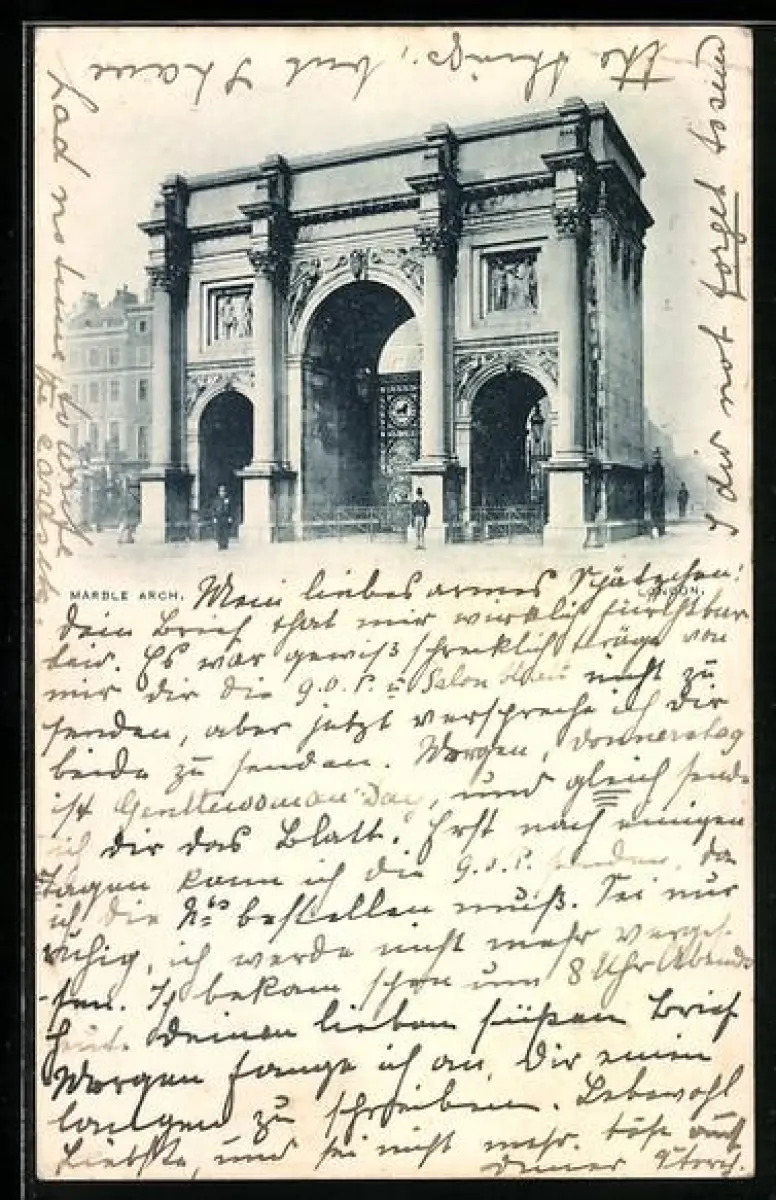 I did not forget to send
the things, but I have
had no time to write
the cardseh.
MARBLE ARCH.
Mein liebes armes Schätzchen!
dein Brief that mir wirklich fürchtbar
leid. Es war gewiß schrecklich träge von
mir Dir die G.O.P. u Salon nicht zu
senden, aber jetzt verspreche ich Dir
beide zu senden. Morgen, donnerstag
ist Gentlewoman Day, und gleich sende
ich dir das Blatt. Erst nach einigen
Tagen kann ich die G.O.P. senden, da
ich die Nos bestellen muß. Sei nur
ruhig, ich werde nicht mehr verges-
sen. Ich bekam schon um 8 Uhr Abends
heut. deinen lieben süßen Brief
Morgen fange ich an, Dir einen
langen zu schreiben. Lebewohl
Liebste, und sei nicht mehr böse auf
deiner